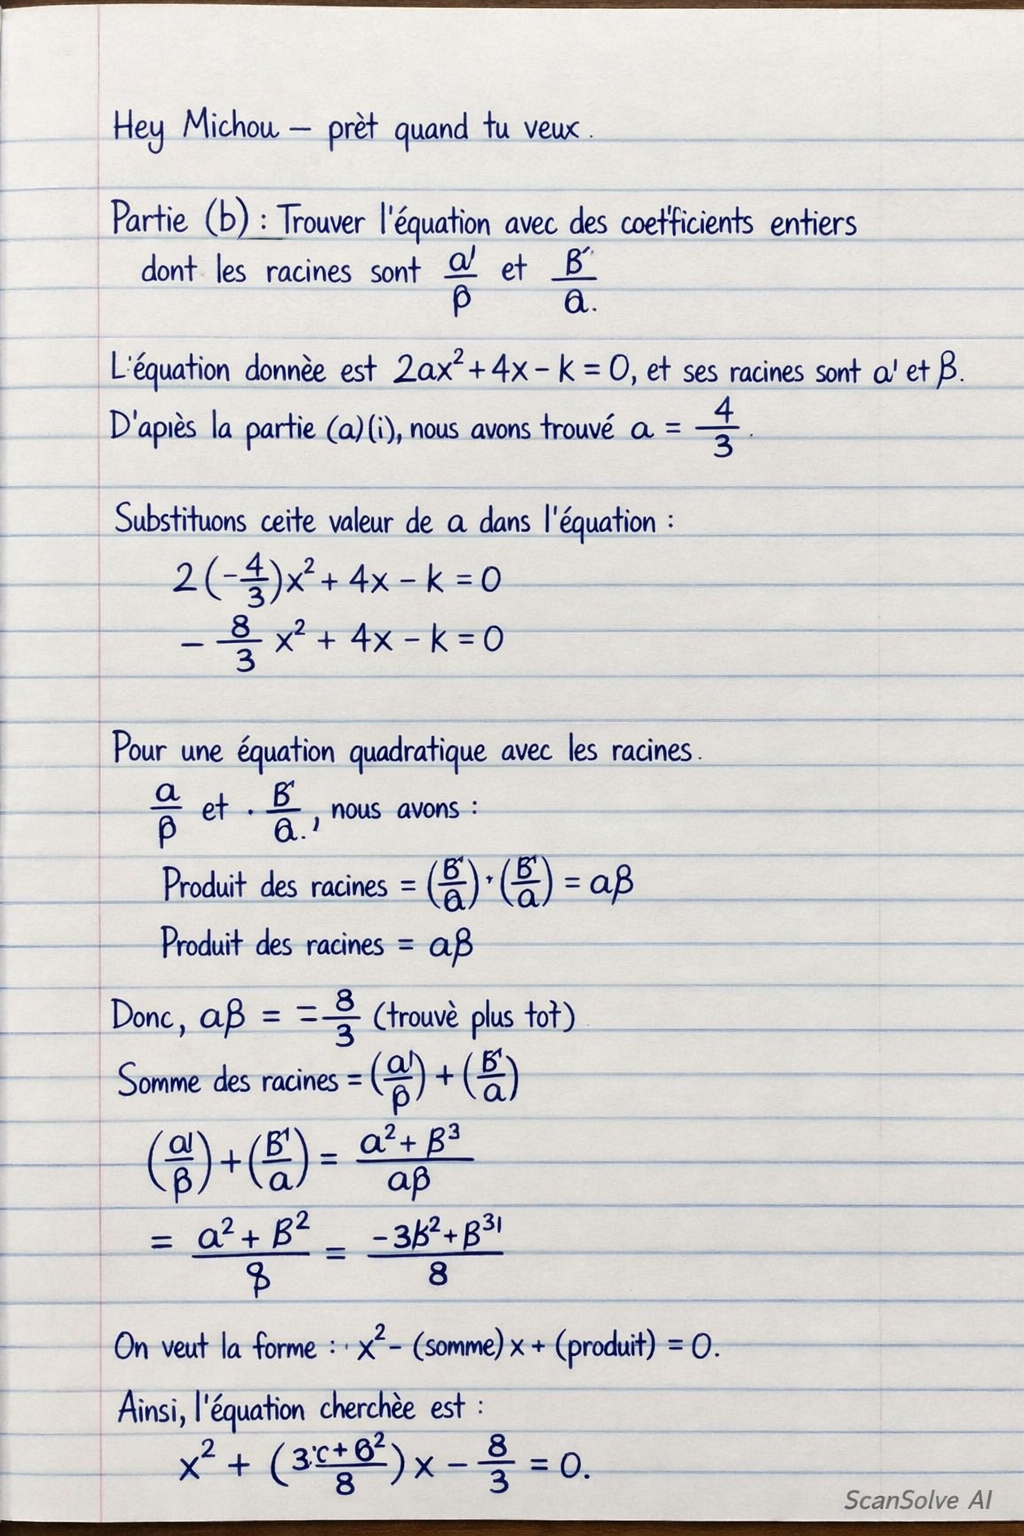 Hey Michou — prèt quand tu veux.
Partie (b) : Trouver l'équation avec des coefficients entiers
dont les racines sont a'/β et B'/a.
L'équation donnèe est 2ax² + 4x - k = 0, et ses racines sont a' et β.
D'apiès la partie (a)(i), nous avons trouvé a = 4/3.
Substituons ceite valeur de a dans l'équation :
2(-4/3)x² + 4x - k = 0
- 8/3 x² + 4x - k = 0
Pour une équation quadratique avec les racines.
a/β et · B'/a., nous avons :
Produit des racines = (B'/a)·(B'/a) = aβ
Produit des racines = aβ
Donc, aβ = =8/3 (trouvè plus tot)
Somme des racines = (a'/β) + (B'/a)
(a'/β) + (B'/a) = (a² + B³)/(aβ)
= (a² + B²)/8 = (-3k² + B³¹)/8
On veut la forme : · x² - (somme) x + (produit) = 0.
Ainsi, l'équation cherchèe est :
x² + (/8) x - 8/3 = 0.
ScanSolve AI